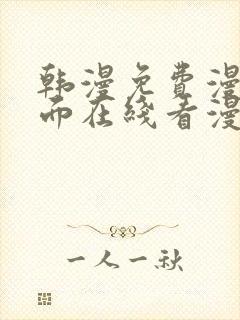 韩漫免费漫
而在线看漫
一人一秋